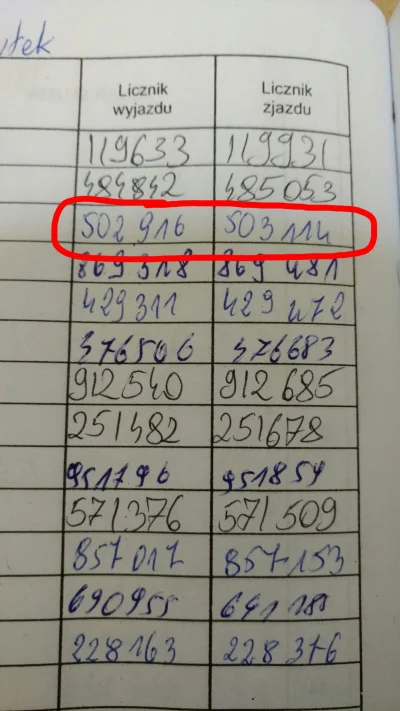 Licznik wyjazdu Licznik zjazdu
119633 119931
484842 485053
502 916 503 114
869 318 869 481
429 311 429 472
376506 376683
912540 912 685
251482 251678
951796 951854
571.376 571509
857017 857153
690955
228163 228376